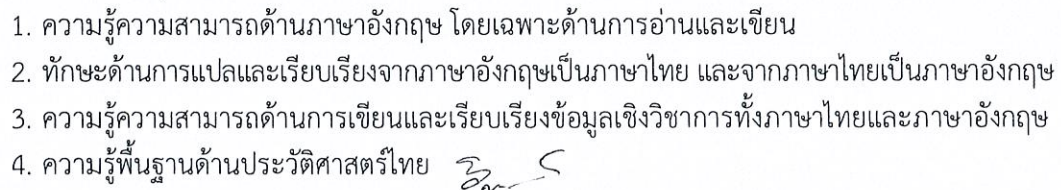 1. ความรู้ความสามารถด้านภาษาอังกฤษ โดยเฉพาะด้านการอ่านและเขียน
2. ทักษะด้านการแปลและเรียบเรียงจากภาษาอังกฤษเป็นภาษาไทย และจากภาษาไทยเป็นภาษาอังกฤษ
3. ความรู้ความสามารถด้านการเขียนและเรียบเรียงข้อมูลเชิงวิชาการทั้งภาษาไทยและภาษาอังกฤษ
4. ความรู้พื้นฐานด้านประวัติศาสตร์ไทย